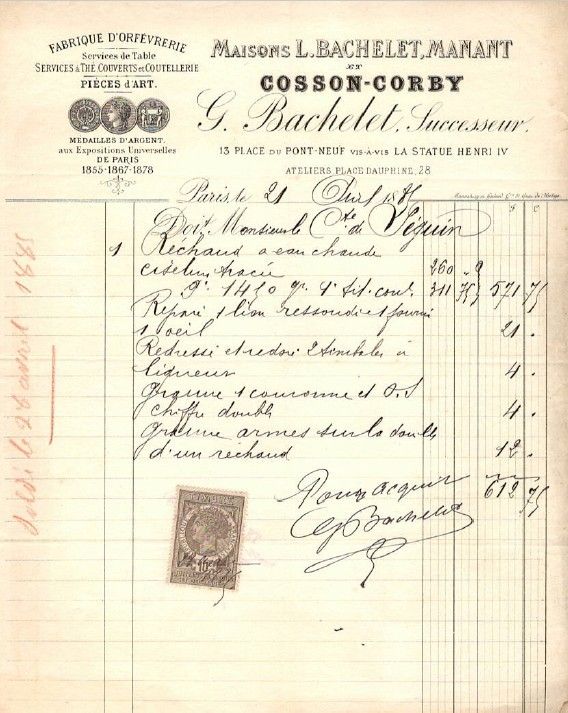 FABRIQUE D'ORFÈVRERIE
Services de Table
SERVICES à THÉ COUVERTS et COUTELLERIE
PIÈCES d'ART.
MEDAILLES D'ARGENT
aux Expositions Universelles
DE PARIS
1855-1867-1878
MAISONS L. BACHELET, MANANT
ET
COSSON-CORBY
G. Bachelet, Successeur.
13 PLACE DU PONT-NEUF VIS-À-VIS LA STATUE HENRI IV
ATELIERS PLACE DAUPHINE, 28
Paris le 21 Avril 1885
F C
Doit Monsieur le Cte de Séguin
1 Rechaud a eau chaude
260
Pt 1450 gr 1er tit. cont. 311 75 571 75
Reparé 1 lion ressoudé et fourni
1 oeil 21 .
Redressé et redoré 2 timbales à
liqueur 4 .
Gravure 1 couronne et
chiffre double 4 .
Gravure armes sur la douille
d'un rechaud 12 .
612 75
Pour acquit
G Bachelet
Soldé le 26 avril 1885
10